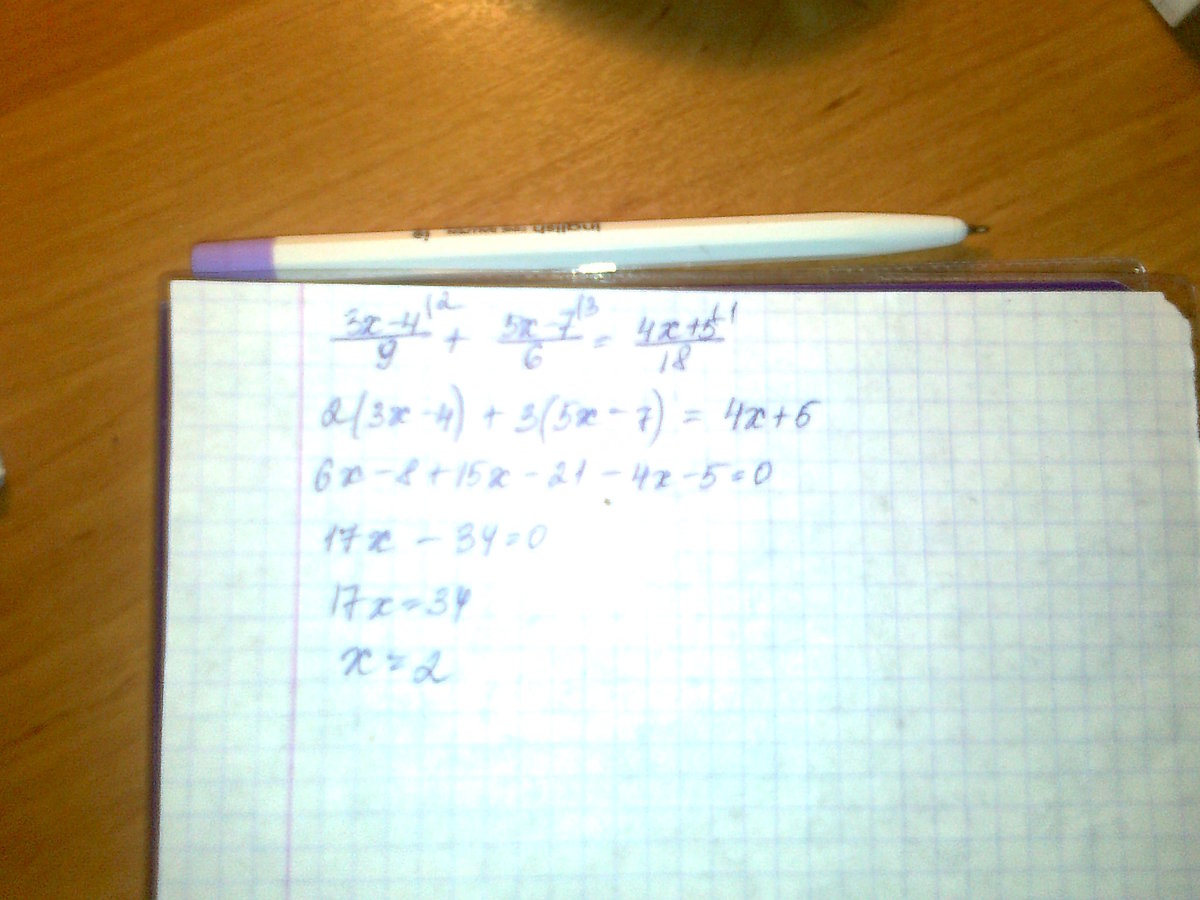 english
(3x-4)/9 |2 + (5x-7)/6 |3 = (4x+5)/18 |1
2(3x-4) + 3(5x-7) = 4x+5
6x-8+15x-21-4x-5=0
17x-34=0
17x=34
x=2